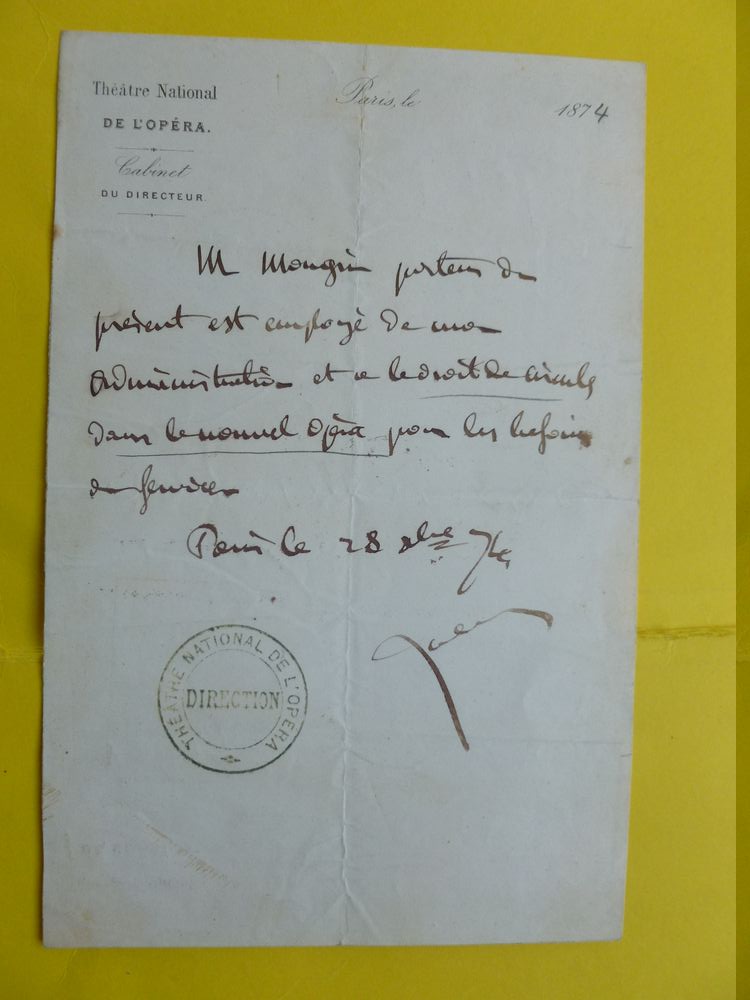 Théâtre National
DE L'OPÉRA.
Cabinet
DU DIRECTEUR
Paris, le 1874
M Mongin porteur du
présent est employé de mon
administration et a le droit de circuler
dans le nouvel Opéra pour les besoins
du service
Paris le 28 xbre 74
THÉATRE NATIONAL DE L'OPÉRA
DIRECTION